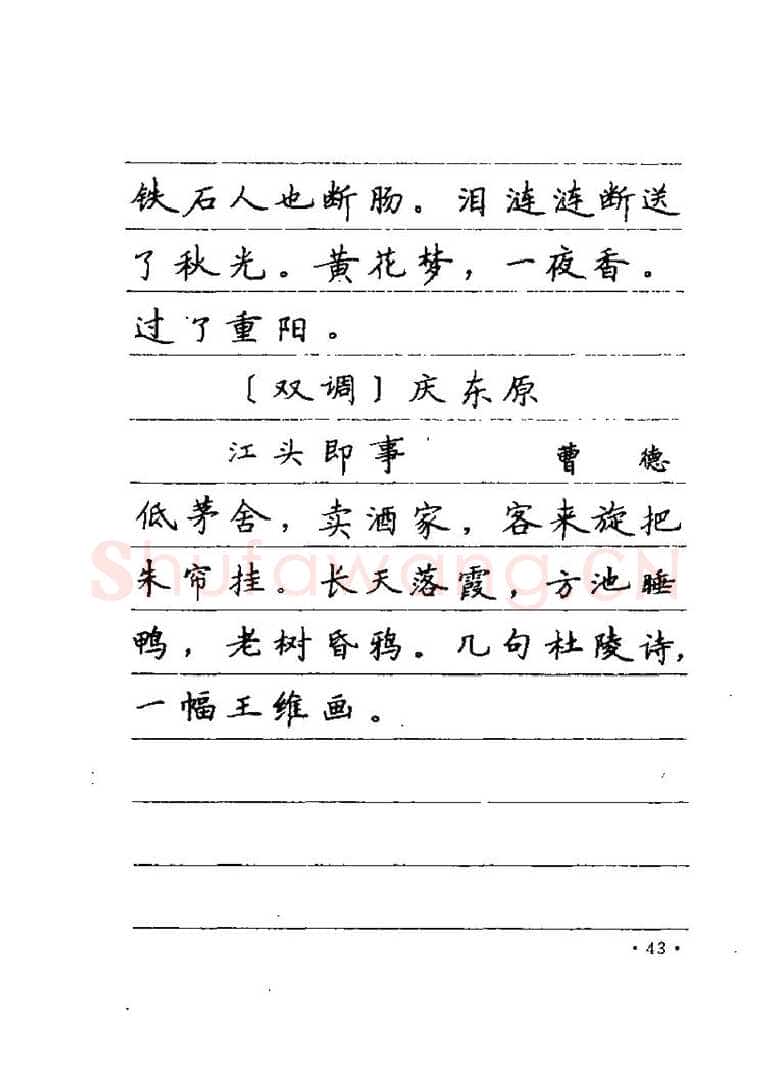 铁石人也断肠。泪涟涟断送
了秋光。黄花梦，一夜香。
过了重阳。
〔双调〕庆东原
江头即事 曹德
低茅舍，卖酒家，客来旋把
朱帘挂。长天落霞，方池睡
鸭，老树昏鸦。几句杜陵诗，
一幅王维画。
Shufawang.CN
·43·